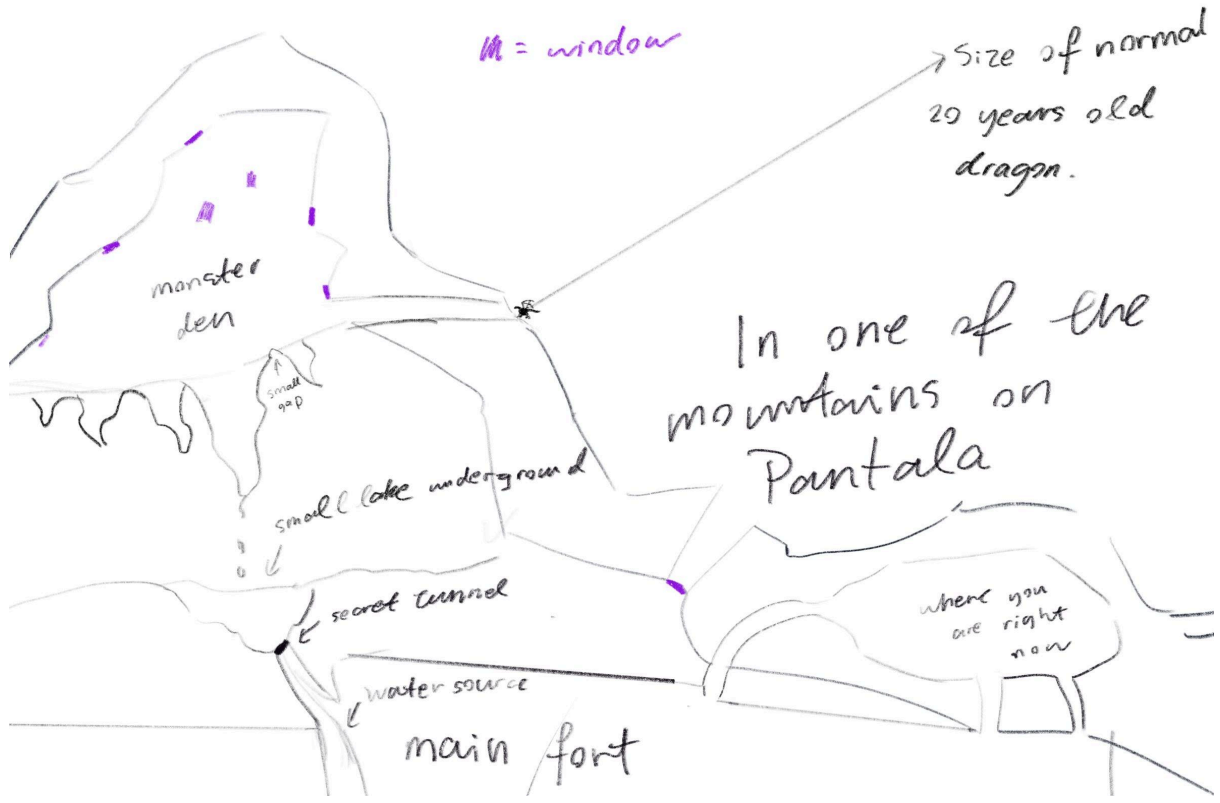 = window
Size of normal
20 years old
dragon.
monster
den
small
gap
In one of the
mountains on
Pantala
small lake underground
secret tunnel
where you
are right
now
water source
main fort